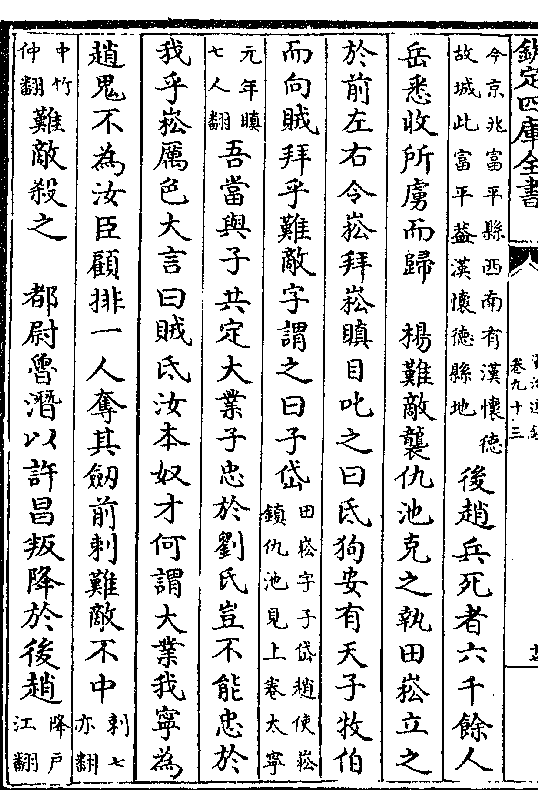 欽定四庫全書
卷九十三
今京兆富平縣西南有漢懷德
故城此富平葢漢懷德縣地
後趙兵死者六千餘人
岳悉收所虜而歸 楊難敵襲仇池克之執田崧立之
於前左右令崧拜崧瞋目叱之曰氐狗安有天子牧伯
而向賊拜乎難敵字謂之曰子岱
田崧字子岱趙使崧
鎮仇池見上卷太寧
元年瞋
七人翻
吾當與子共定大業子忠於劉氏豈不能忠於
我乎崧厲色大言曰賊氐汝本奴才何謂大業我寧為
趙鬼不為汝臣顧排一人奪其劒前刺難敵不中
刺七
亦翻
中竹
仲翻
難敵殺之 都尉魯潛以許昌叛降於後趙
降戶
江翻